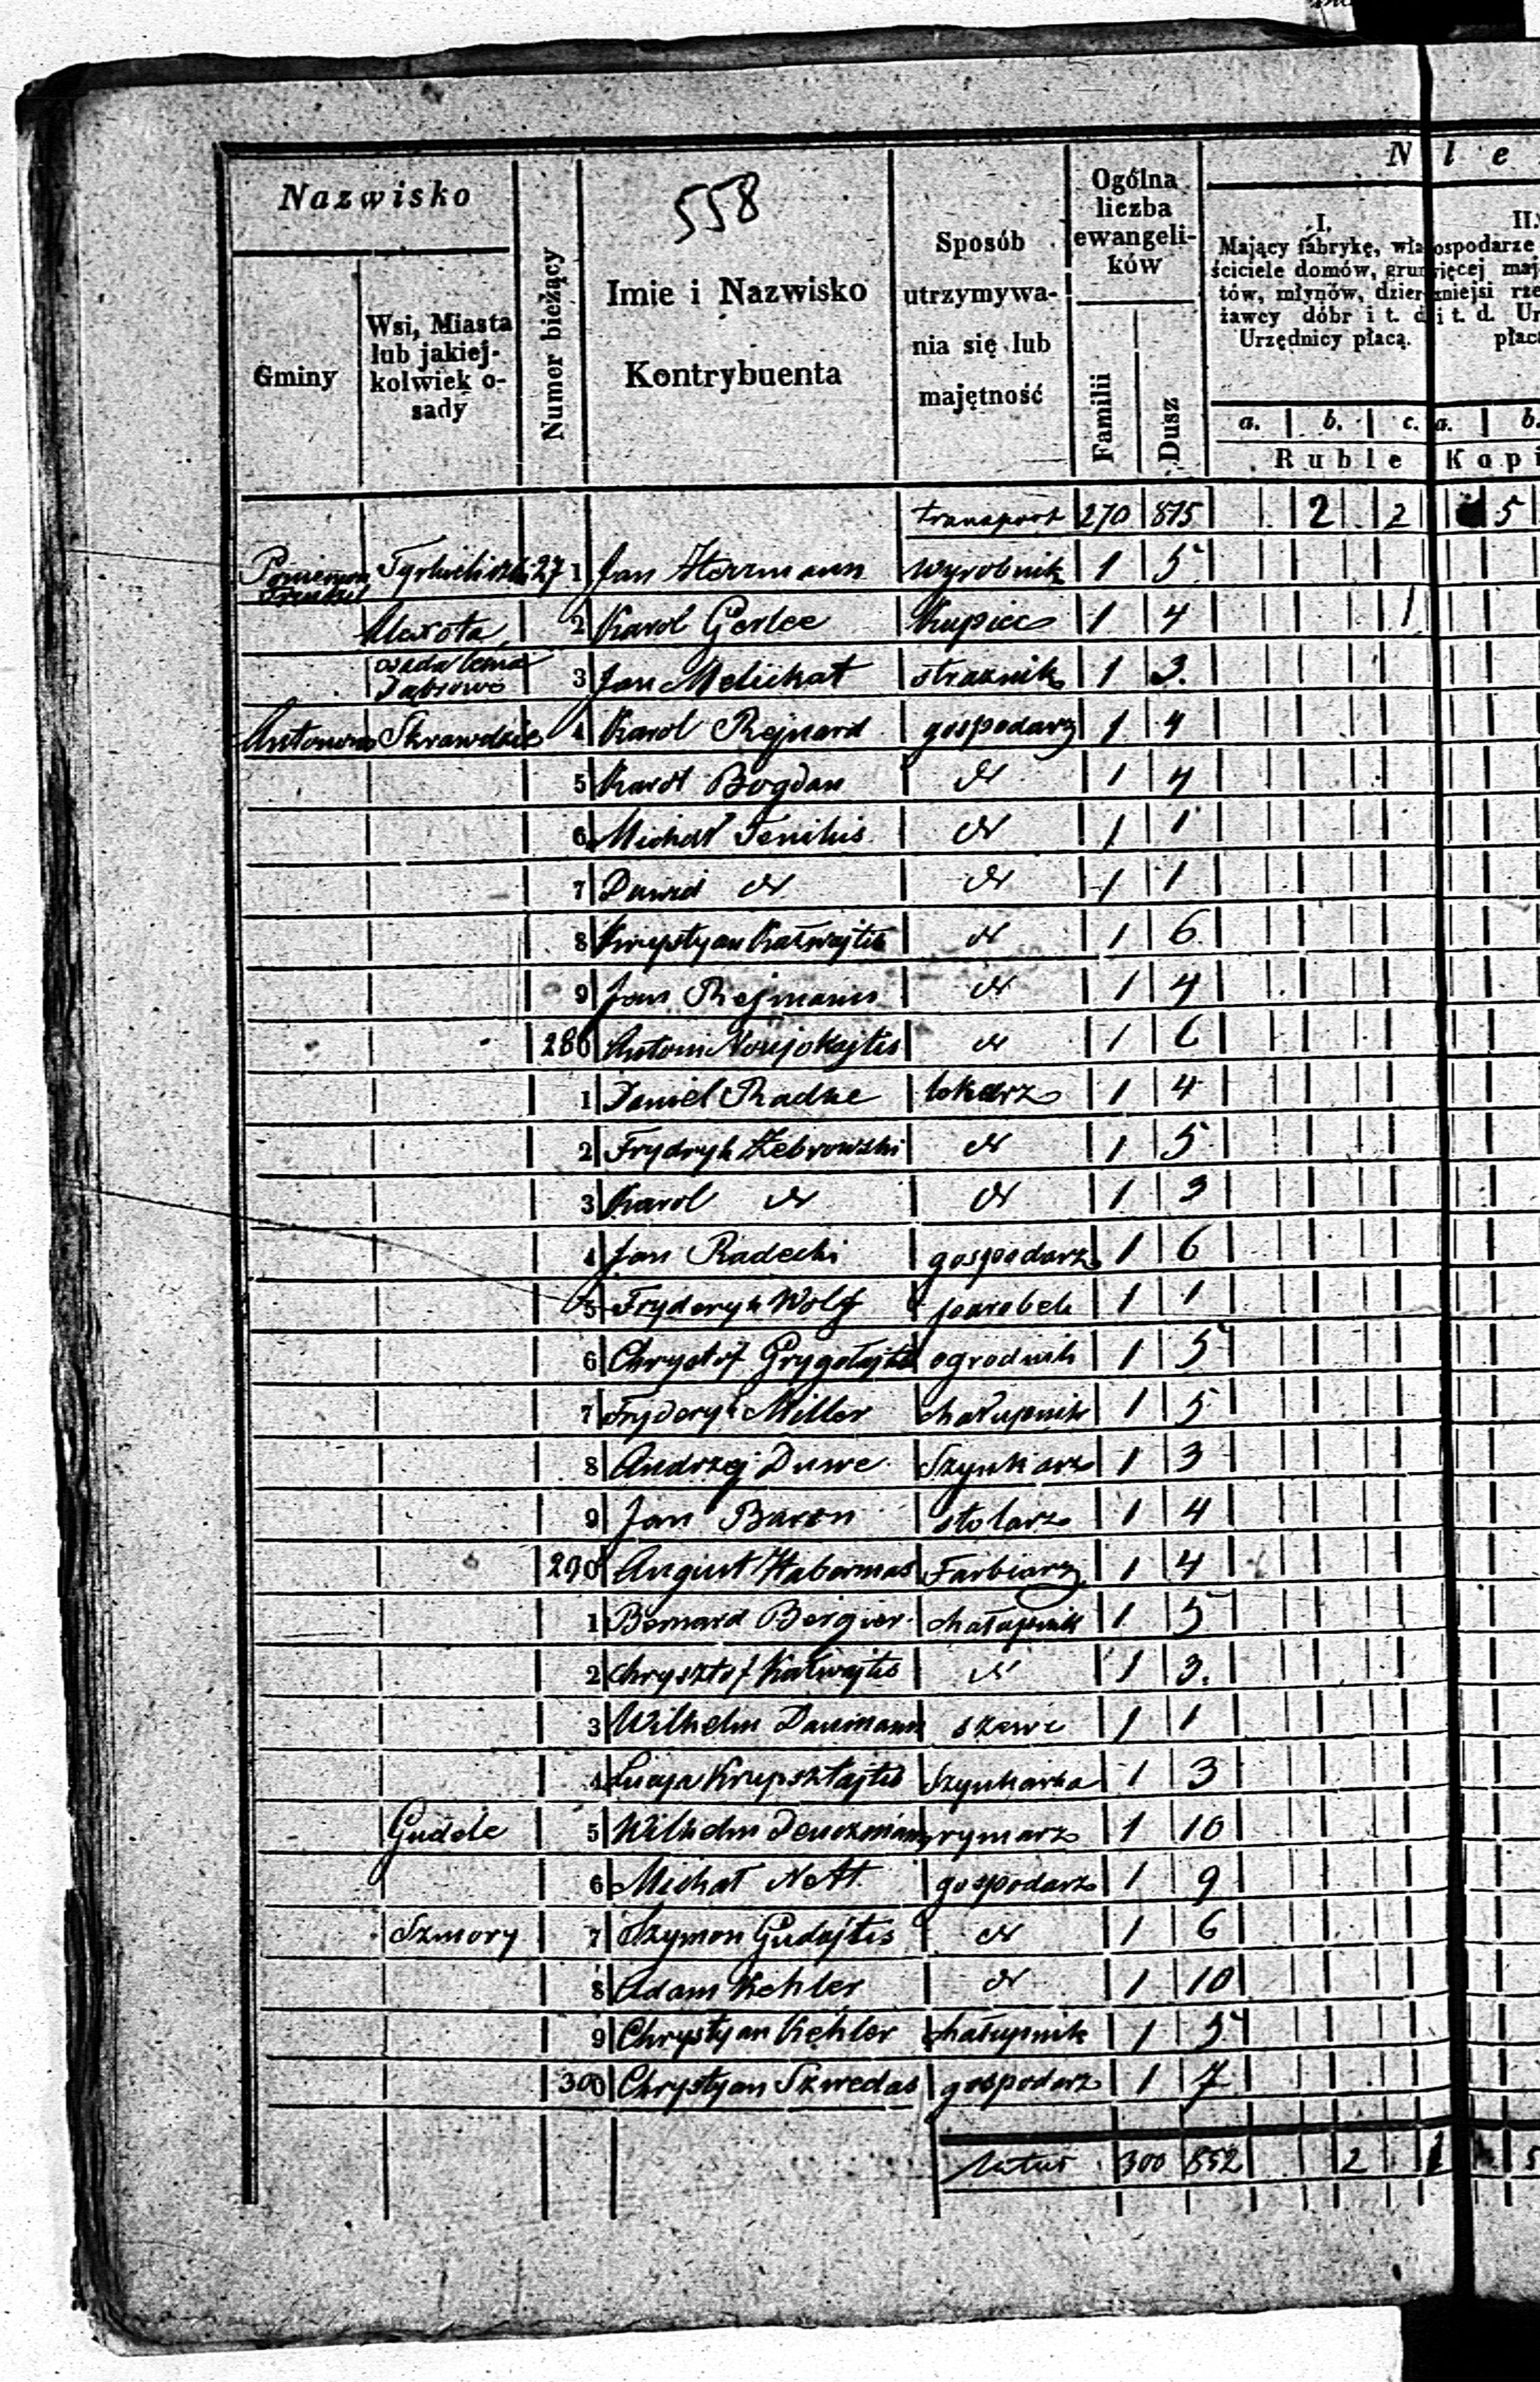 Nazwisko
Gminy
Wsi, Miasta
lub jakiej-
kolwiek o-
sady
Numer bieżący
558
Imie i Nazwisko
Kontrybuenta
Sposób
utrzymywa-
nia się lub
majętność
Ogólna
liczba
ewangeli-
ków
Familii
Dusz
N i e
I.
Mający fabrykę, wła-
ściciele domów, grun-
tów, młynów, dzier-
żawcy dóbr i t. d.
Urzędnicy płacą.
II.
ospodarze
ięcej maj
niejsi rze
i t. d. Ur
płac
a. b. c. a. b.
Ruble Kopi
transport 270 815 2 2 5
27 1 Jan Herrmann wyrobnik 1 5
2 Karol Gerlee Kupiec 1 4 1
Dąbrowo 3 Jan Melickat straznik 1 3.
Antonowo Skrawdzie 4 Karol Rejnard gospodarz 1 4
5 Karol Bogdan dto 1 4
6 Michał Tenikis dto 1 1
7 Dawid dto dto 1 1
8 Krystyan Kałwajtis dto 1 6
9 Jan Rejmann dto 1 4
280 Antoni Noujokajtis dto 1 6
1 Daniel Radke tokarz 1 4
2 Frydryk Żebrowski dto 1 5
3 Karol dto dto 1 3
4 Jan Radecki gospodarz 1 6
5 Fryderyk Wolf parobek 1 1
6 Chrystof Grygołajtis ogrodnik 1 5
7 Fryderyk Miller chałupnik 1 5
8 Andrzej Duwe Szynkarz 1 3
9 Jan Baron stolarz 1 4
290 August Habermas Farbiarz 1 4
1 Bernard Bergier chałupnik 1 5
2 Chrysztof Kałwajtis dto 1 3.
3 Wilhelm Daumann szewc 1 1
4 Lucya Krupsztajtis Szynkarka 1 3
Gudele 5 Wilhelm rymarz 1 10
6 Michał Nett gospodarz 1 9
Szmory 7 Szymon Gudajtis dto 1 6
8 Adam Kehler dto 1 10
9 Chrystyan Kehler chałupnik 1 5
300 Chrystyan Szwedas gospodarz 1 7
latus 300 852 2 1 5